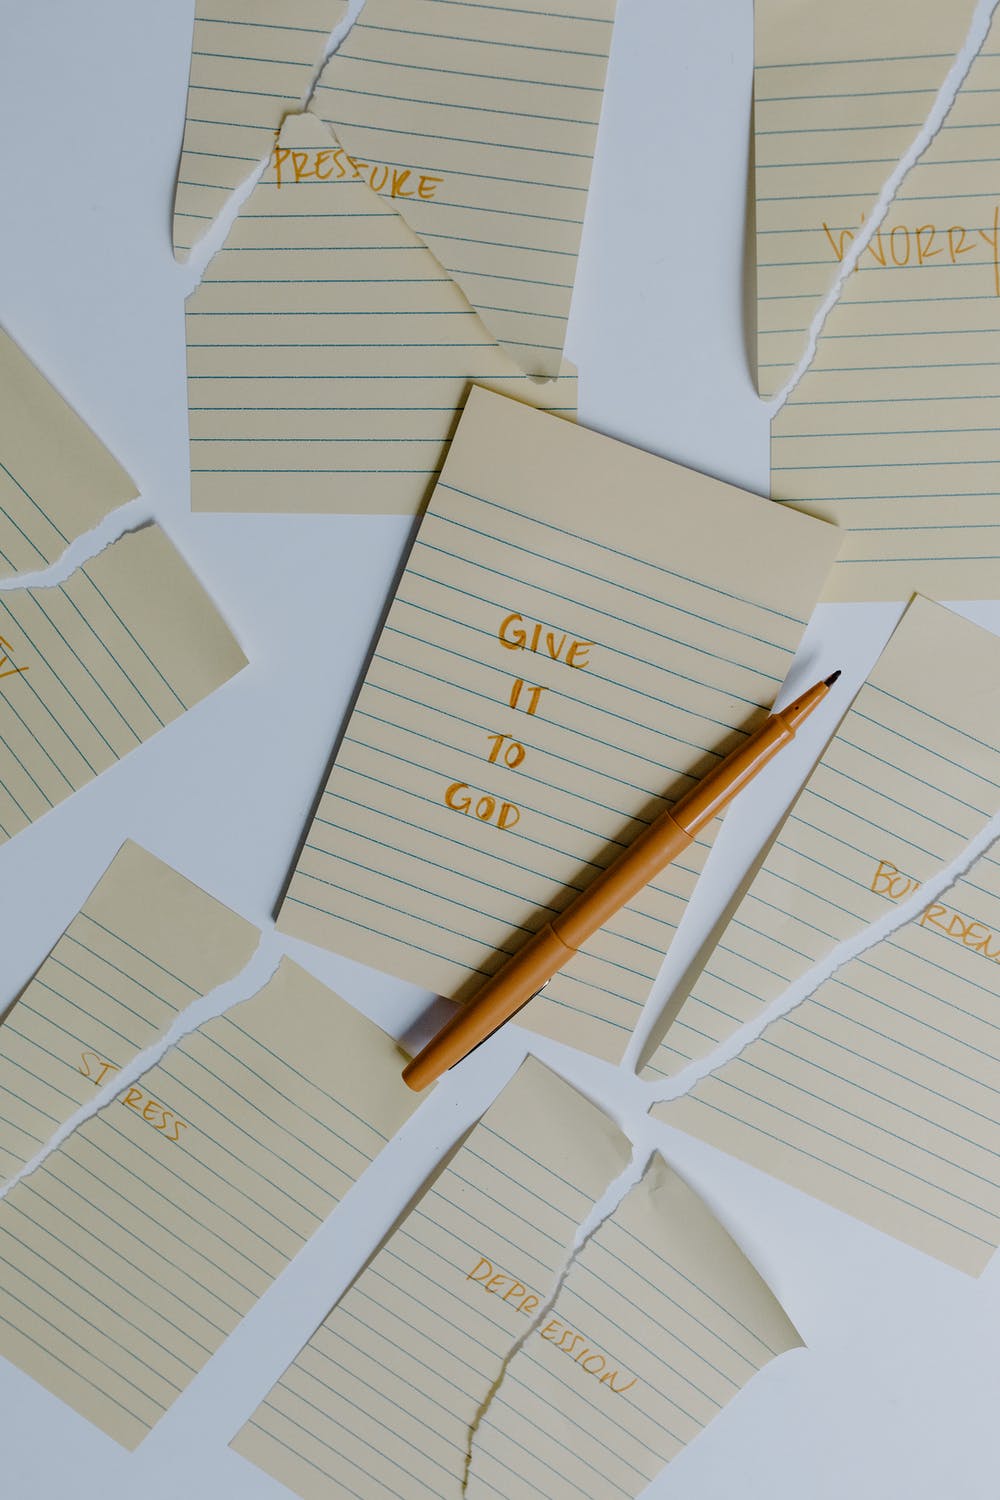 PRESSURE
WORRY
GIVE
IT
TO
GOD
BURDEN
STRESS
DEPRESSION